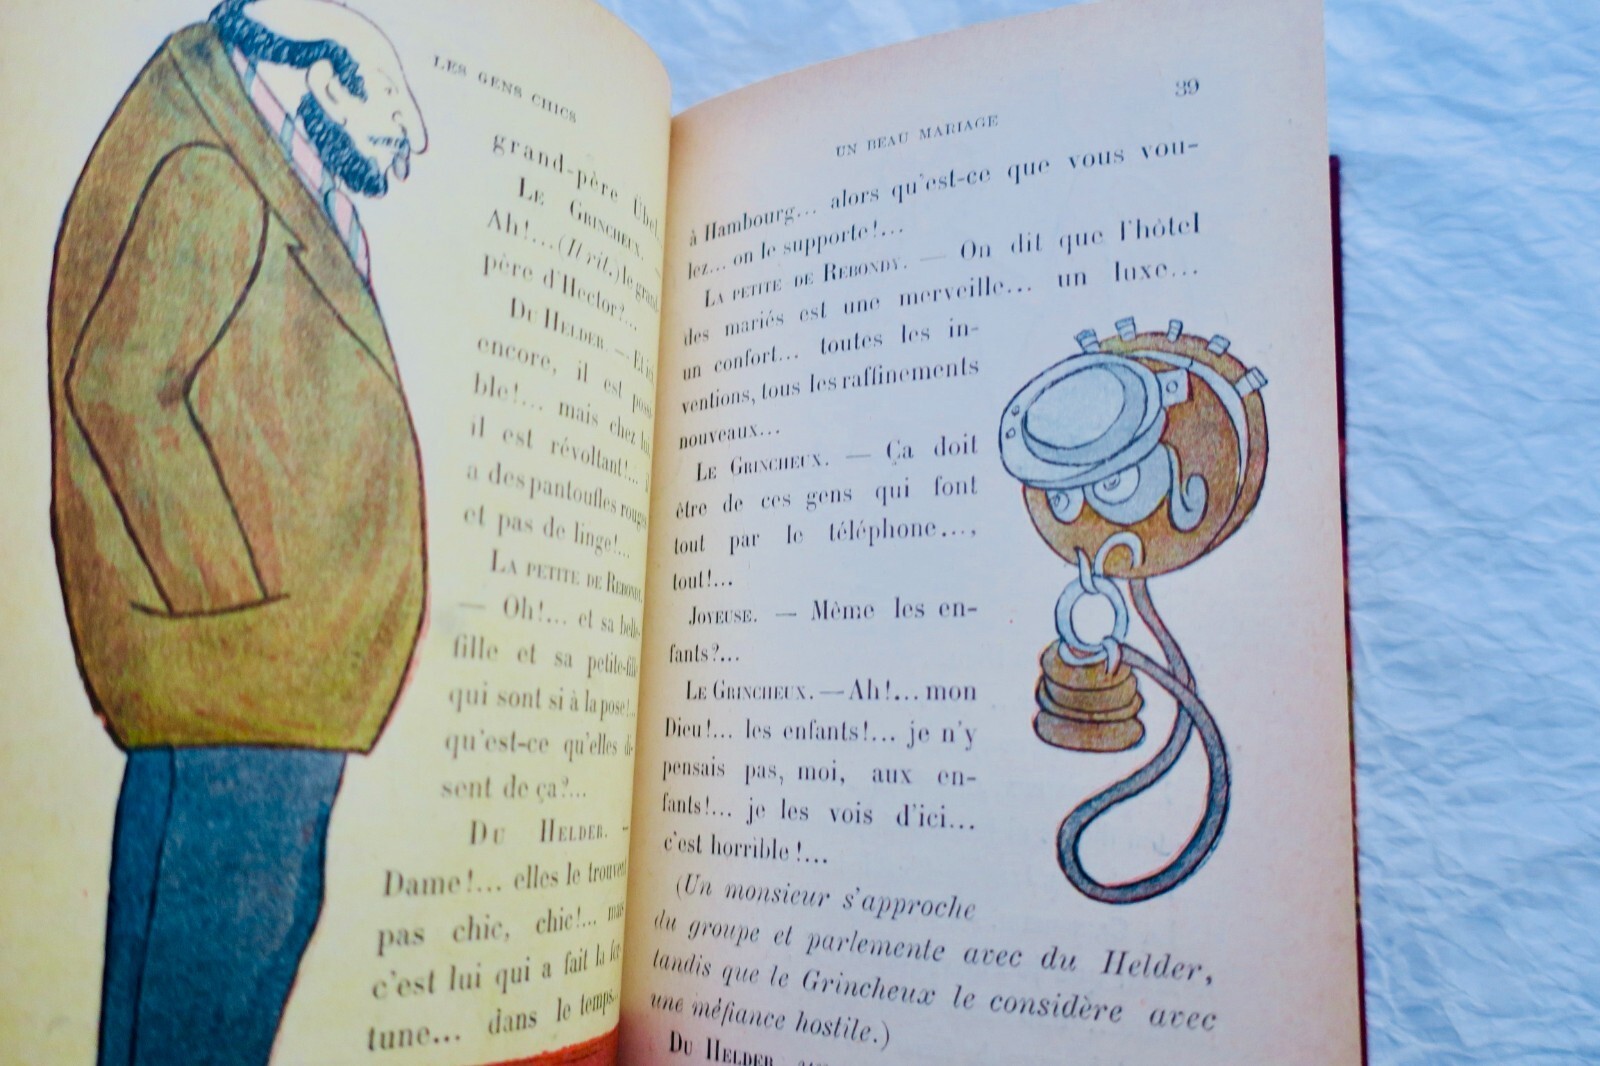 LES GENS CHICS
grand-père Übel...
LE GRINCHEUX. —
Ah!... (Il rit.) le grand-
père d'Hector?...
DU HELDER. — Et ici
encore, il est possi-
ble!... mais chez lui,
il est révoltant!... il
a des pantoufles rouges
et pas de linge!...
LA PETITE DE REBONDY.
— Oh!... et sa belle-
fille et sa petite-fille
qui sont si à la pose!...
qu'est-ce qu'elles di-
sent de ça?...
DU HELDER. —
Dame!... elles le trouvent
pas chic, chic!... mais
c'est lui qui a fait la for-
tune... dans le temps...
UN BEAU MARIAGE
39
à Hambourg... alors qu'est-ce que vous vou-
lez... on le supporte!...
LA PETITE DE REBONDY. — On dit que l'hôtel
des mariés est une merveille... un luxe...
un confort... toutes les in-
ventions, tous les raffinements
nouveaux...
LE GRINCHEUX. — Ça doit
être de ces gens qui font
tout par le téléphone...,
tout!...
JOYEUSE. — Même les en-
fants?...
LE GRINCHEUX. — Ah!... mon
Dieu!... les enfants!... je n'y
pensais pas, moi, aux en-
fants!... je les vois d'ici...
c'est horrible!...
(Un monsieur s'approche
du groupe et parlemente avec du Helder,
tandis que le Grincheux le considère avec
une méfiance hostile.)
DU HELDER